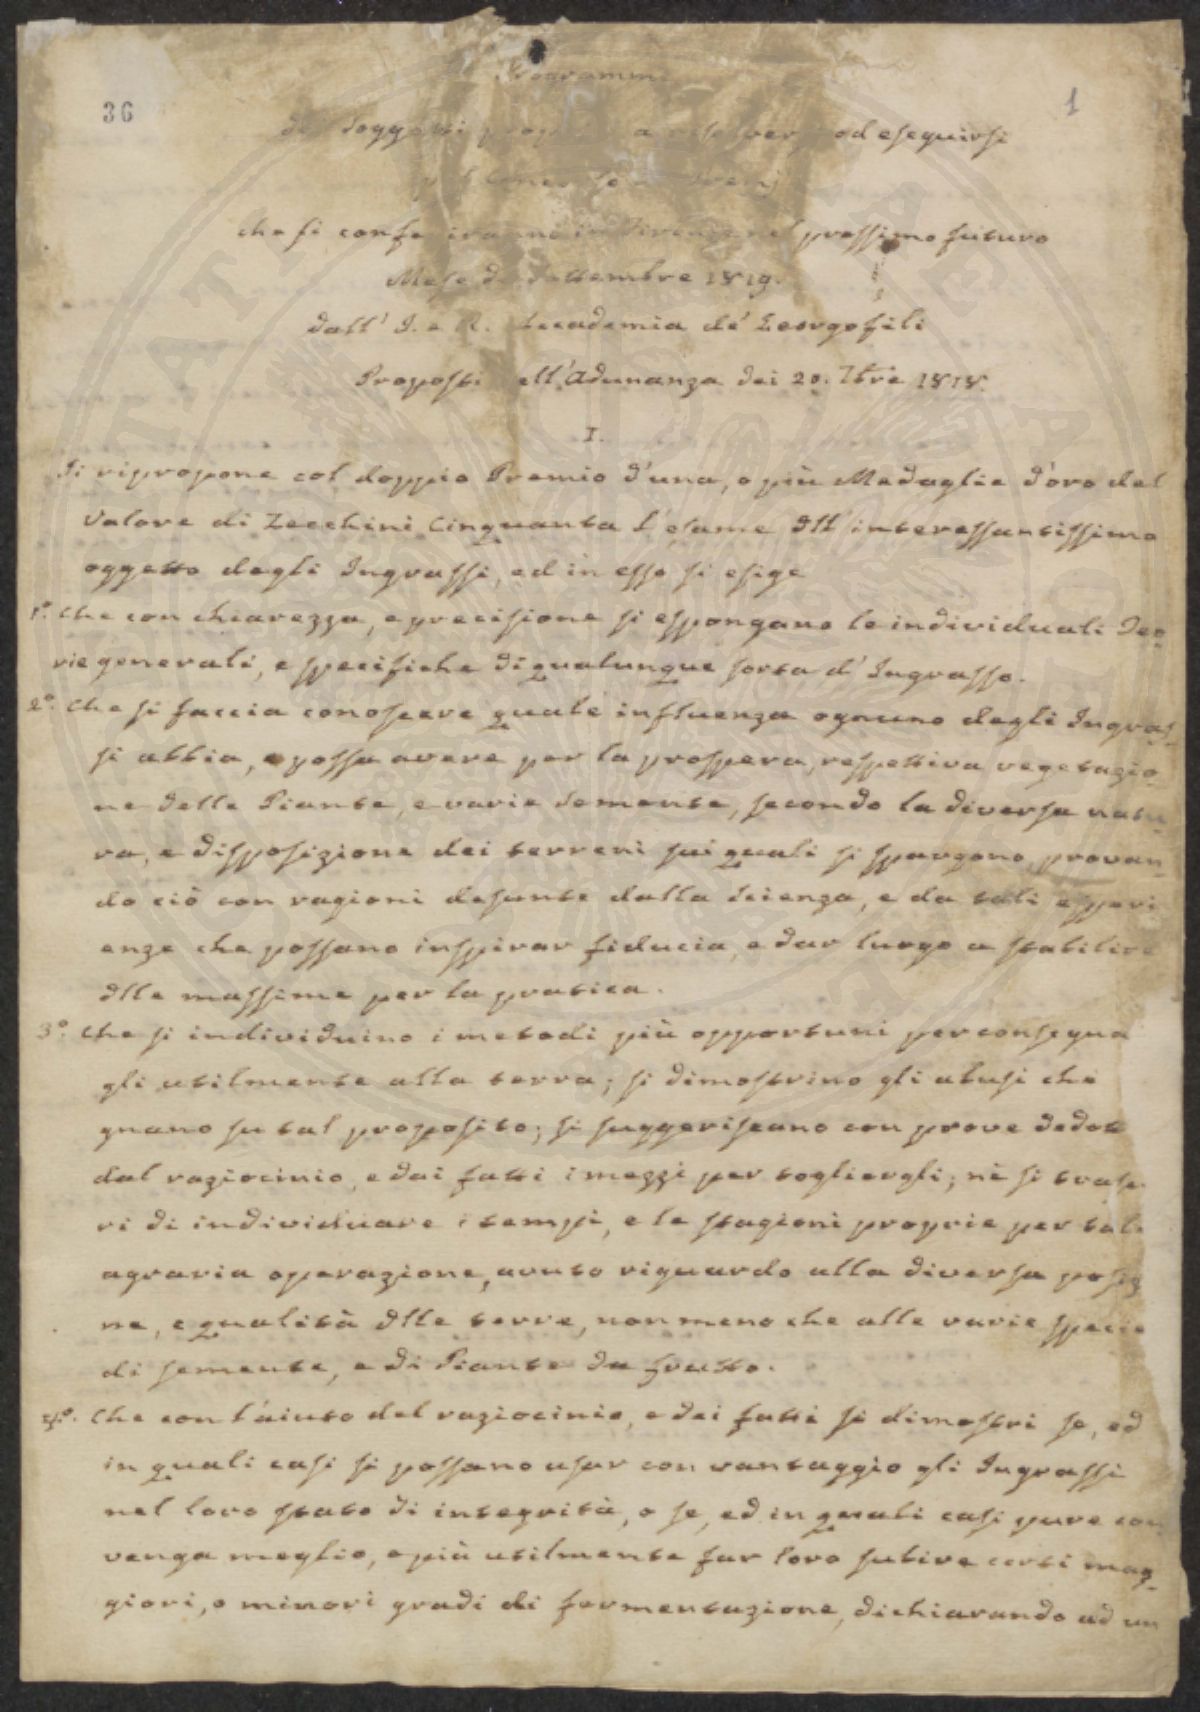 36
1
Programm
dei Soggetti od eseguirsi
che si conferiranno in Firenze nel prossimo futuro
Mese di Settembre 1819.
dall' I. e R. Accademia de' Georgofili
Proposti nell' Adunanza dei 20. 7bre 1818.
I.
Si ripropone col doppio Premio d'una, o più Medaglie d'oro del
valore di Zecchini Cinquanta l'esame dll' interessantissimo
oggetto degli Ingrassi, ed in esso si esige
1°. Che con chiarezza, e precisione si espongano le individuali Teo-
rie generali, e specifiche di qualunque sorta d'Ingrasso.
2°. Che si faccia conoscere quale influenza ognuno degli Ingras-
si abbia, e possa avere per la prospera, respettiva vegetazio-
ne delle Piante, e varie Semente, secondo la diversa natu-
ra, e disposizione dei terreni sui quali si spargono, provan-
do ciò con ragioni desunte dalla Scienza, e da tali esperi
enze che possano inspirar fiducia, e dar luogo a stabilire
dlle massime per la pratica.
3°. Che si individuino i metodi più opportuni per consegna
gli utilmente alla terra; si dimostrino gli abusi che
gnano su tal proposito; si suggeriscano con prove dedott
dal raziocinio, e dai fatti i mezzi per togliergli; nè si trascu
ri di individuare i tempi, e le stagioni proprie per tale
agraria operazione, avuto riguardo alla diversa posiz
ne, e qualità dlle terre, non meno che alle varie specie
di semente, e di Piante da frutto.
4°. Che con l'aiuto del raziocinio, e dei fatti si dimostri se, ed
in quali casi si possano usar con vantaggio gli Ingrassi
nel loro stato di integrità, o se, ed in quali casi pure con
venga meglio, e più utilmente far loro subire certi mag-
giori, o minori gradi di fermentazione, dichiarando ad un